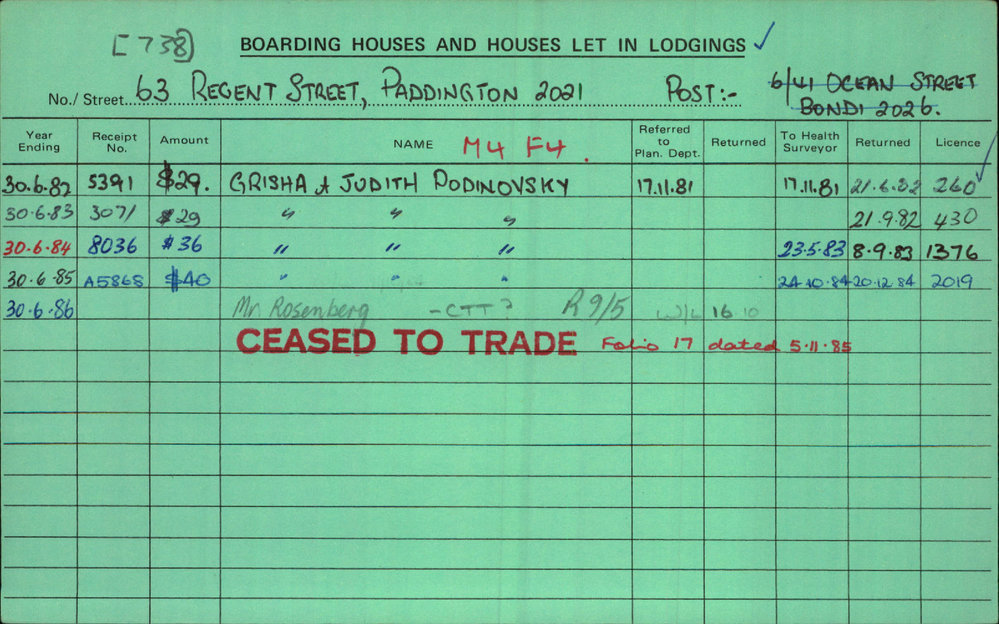 [738] BOARDING HOUSES AND HOUSES LET IN LODGINGS ✓
No./Street 63 REGENT STREET, PADDINGTON 2021 POST:- 6/41 OCEAN STREET
BONDI 2026.
Year Ending Receipt No. Amount NAME M4 F4. Referred to Plan. Dept. Returned To Health Surveyor Returned Licence
30.6.82 5391 $29. GRISHA & JUDITH PODINOVSKY 17.11.81 17.11.81 21.6.82 260 ✓
30.6.83 3071 $29 " " " 21.9.82 430
30.6.84 8036 $36 " " " 23.5.83 8.9.83 1376
30.6.85 A5868 $40 " " " 24.10.84 20.12.84 2019
30.6.86 Mr Rosenberg - CTT? R 9/5 W/L 16 10
CEASED TO TRADE Folio 17 dated 5.11.85